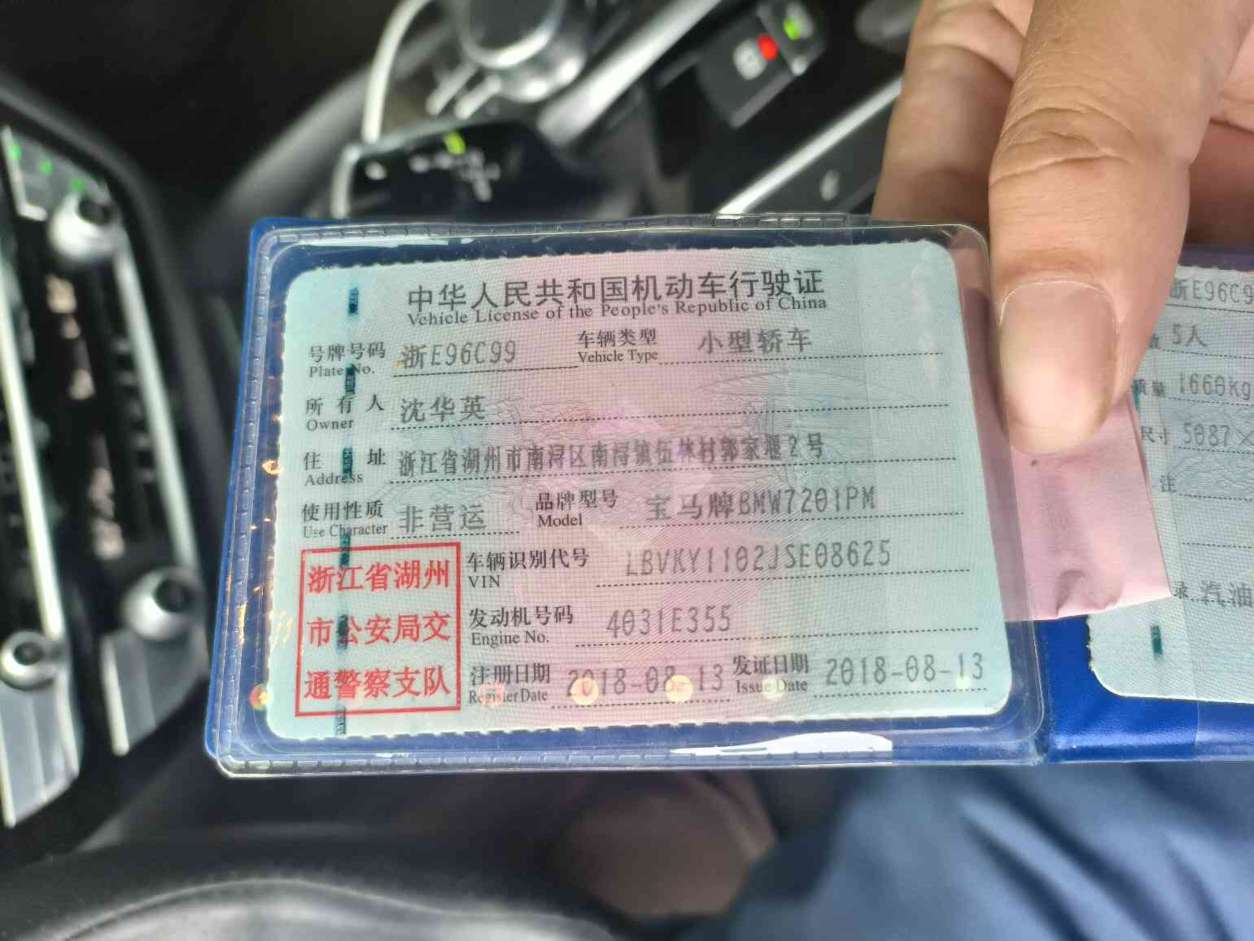 中华人民共和国机动车行驶证
Vehicle License of the People's Republic of China
号牌号码 浙E96C99 车辆类型 小型轿车
Plate No. Vehicle Type
所有人 沈华英
Owner
住址 浙江省湖州市南浔区南浔镇伍林村郭家堰2号
Address
使用性质 非营运 品牌型号 宝马牌BMW7201PM
Use Character Model
浙江省湖州
市公安局交
通警察支队
车辆识别代号 LBVKY1102JSE08625
VIN
发动机号码 4031E355
Engine No.
注册日期 2018-08-13 发证日期 2018-08-13
Register Date Issue Date
浙E96C9
5人
质量 1660kg
尺寸 5087×
注
汽油